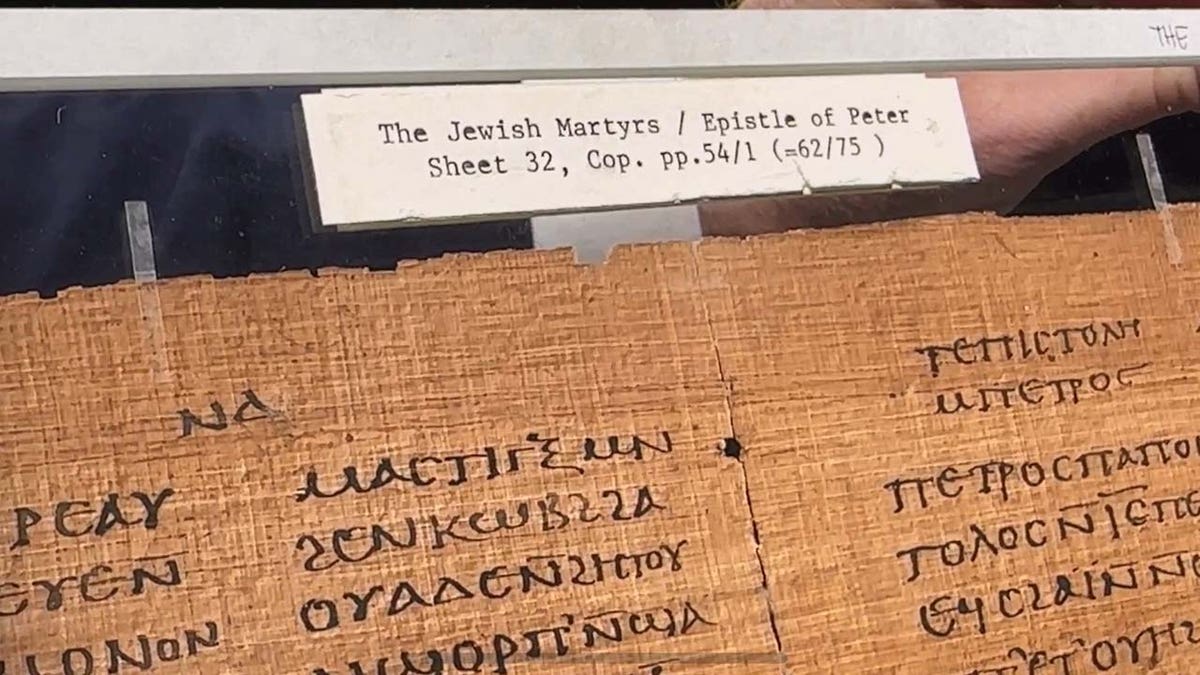 THE
The Jewish Martyrs / Epistle of Peter
Sheet 32, Cop. pp.54/1 (=62/75 )
ⲛⲇ
ⲣⲉⲁⲩ
ⲉⲩⲉⲛ̄
ⲓⲟⲛⲟⲛ
ⲙⲁⲥⲧⲓⲅⲝ ⲙⲛ
ϩⲉⲛⲕⲱⲃϩϩⲁ
ⲟⲩⲁⲇⲉⲛϩⲏⲧⲟⲩ
ⲧⲉⲡⲓⲥⲧⲟⲗⲏ
ⲙⲡⲉⲧⲣⲟⲥ
ⲡⲉⲧⲣⲟⲥⲡⲁⲡⲟ
ⲧⲟⲗⲟⲥⲛ̄ⲓ̄ⲥ̄ⲡⲉ
ⲉϥⲥϩⲁⲓⲛⲛ